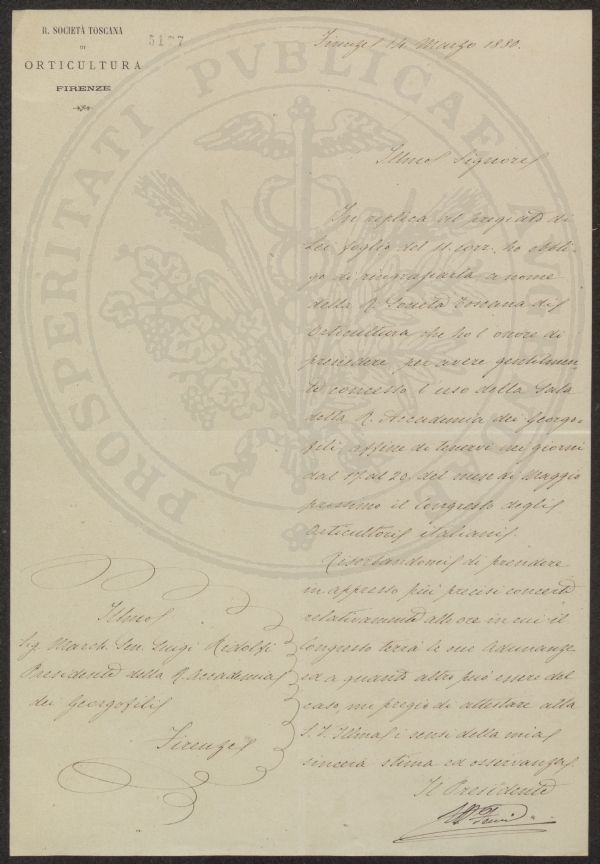 R. SOCIETÀ TOSCANA
DI
ORTICULTURA
FIRENZE
5177
Firenze 14 Marzo 1880.
Illmo Signore
In replica del pregiato di
Lei foglio del 11. corr. ho obbli-
go di ringraziarla a nome
della R. Società Toscana di
Orticultura che ho l'onore di
presiedere, per avere gentilmen-
te concesso l'uso della Sala
della R. Accademia dei Georgo-
fili, affine di tenervi nei giorni
dal 17. al 20. del mese di Maggio
prossimo il Congresso degli
Orticultori italiani.
Riserbandomi di prendere
in appresso più precisi concerti
relativamente alle ore in cui il
Congresso terrà le sue Adunanze
ed a quanto altro può essere del
caso mi pregio di attestare alla
S. V. Illma i sensi della mia
sincera stima ed osservanza.
Il Presidente
Illmo
Sig. March. Sen. Luigi Ridolfi
Presidente della R. Accademia
dei Georgofili
Firenze
PROSPERITATI PVBLICAE